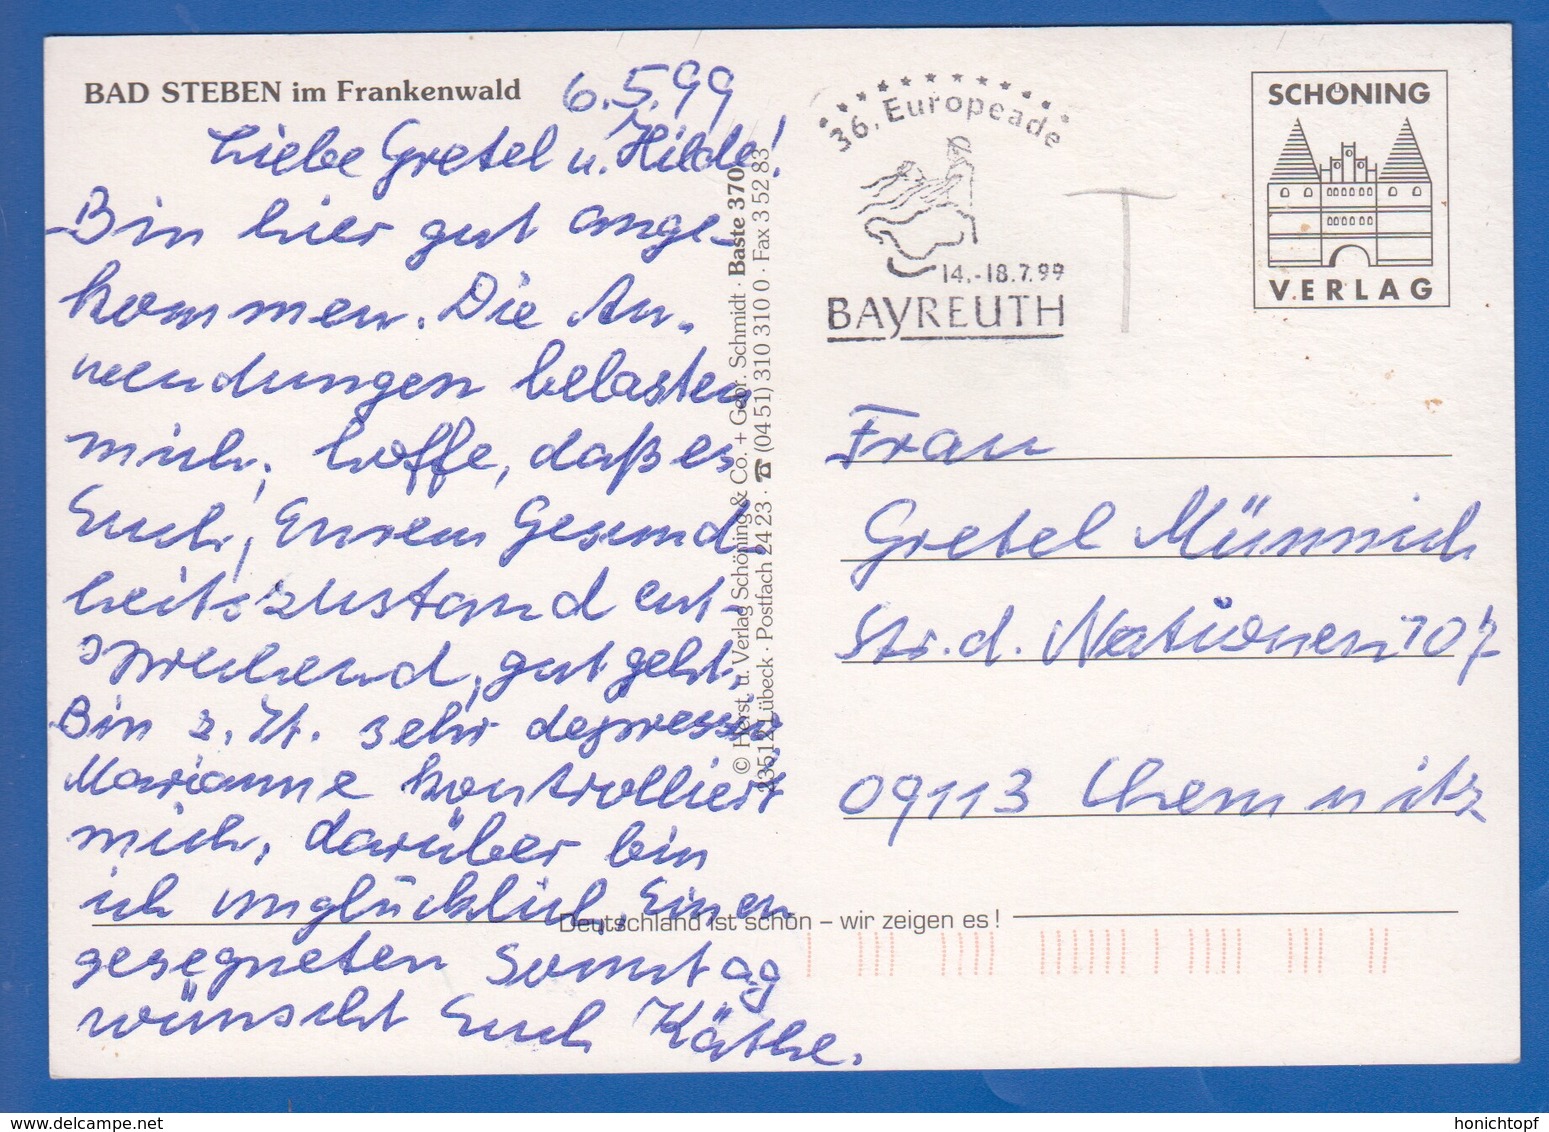 BAD STEBEN im Frankenwald
6.5.99
Liebe Gretel u. Hilde!
Bin hier gut ange-
kommen. Die An-
wendungen belasten
mich, hoffe, daß es
Euch, Eurem Gesund-
heitszustand ent-
sprechend, gut geht.
Bin z. Zt. sehr depressiv,
Marianne kontrolliert
mich, darüber bin
ich unglücklich. Einen
gesegneten Sonntag
wünscht Euch Käthe.
© Herst. u. Verlag Schöning & Co. + Gebr. Schmidt · Baste 370
23512 Lübeck · Postfach 24 23 · ☎ (04 51) 310 310 0 · Fax 3 52 83
36. Europeade
14.-18.7.99
BAYREUTH
T
SCHÖNING
VERLAG
Frau
Gretel Münnich
Str. d. Nationen 107
09113 Chemnitz
Deutschland ist schön – wir zeigen es!
www.delcampe.net
honichtopf